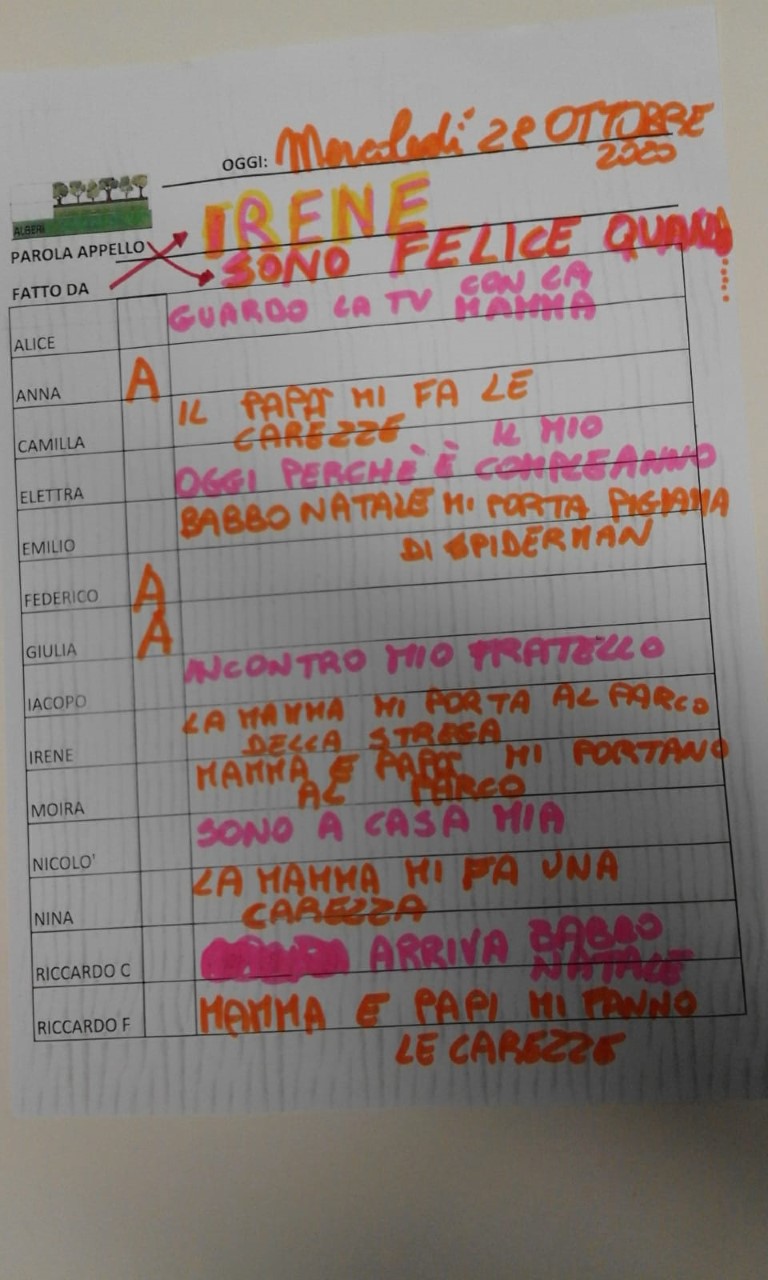 OGGI: Mercoledì 28 OTTOBRE
2020
ALBERI
PAROLA APPELLO IRENE
FATTO DA SONO FELICE QUANDO
....
ALICE GUARDO LA TV CON LA
MAMMA
ANNA A
CAMILLA IL PAPÀ MI FA LE
CAREZZE
ELETTRA OGGI PERCHÈ È IL MIO
COMPLEANNO
EMILIO BABBO NATALE MI PORTA PIGIAMA
DI SPIDERMAN
FEDERICO A
GIULIA A
IACOPO INCONTRO MIO FRATELLO
IRENE LA MAMMA MI PORTA AL PARCO
DELLA STREGA
MOIRA MAMMA E PAPÀ MI PORTANO
AL PARCO
NICOLO' SONO A CASA MIA
NINA LA MAMMA MI FA UNA
CAREZZA
RICCARDO C ARRIVA BABBO
NATALE
RICCARDO F MAMMA E PAPI MI FANNO
LE CAREZZE